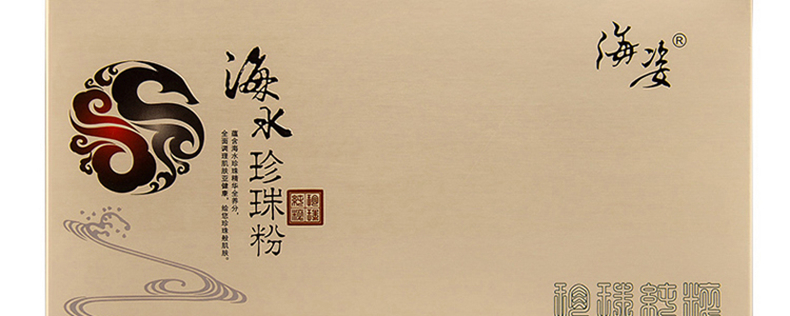 海姿®
海水珍珠粉
蕴含海水珍珠精华全养分,
全面调理肌肤亚健康,给您珍珠般肌肤。